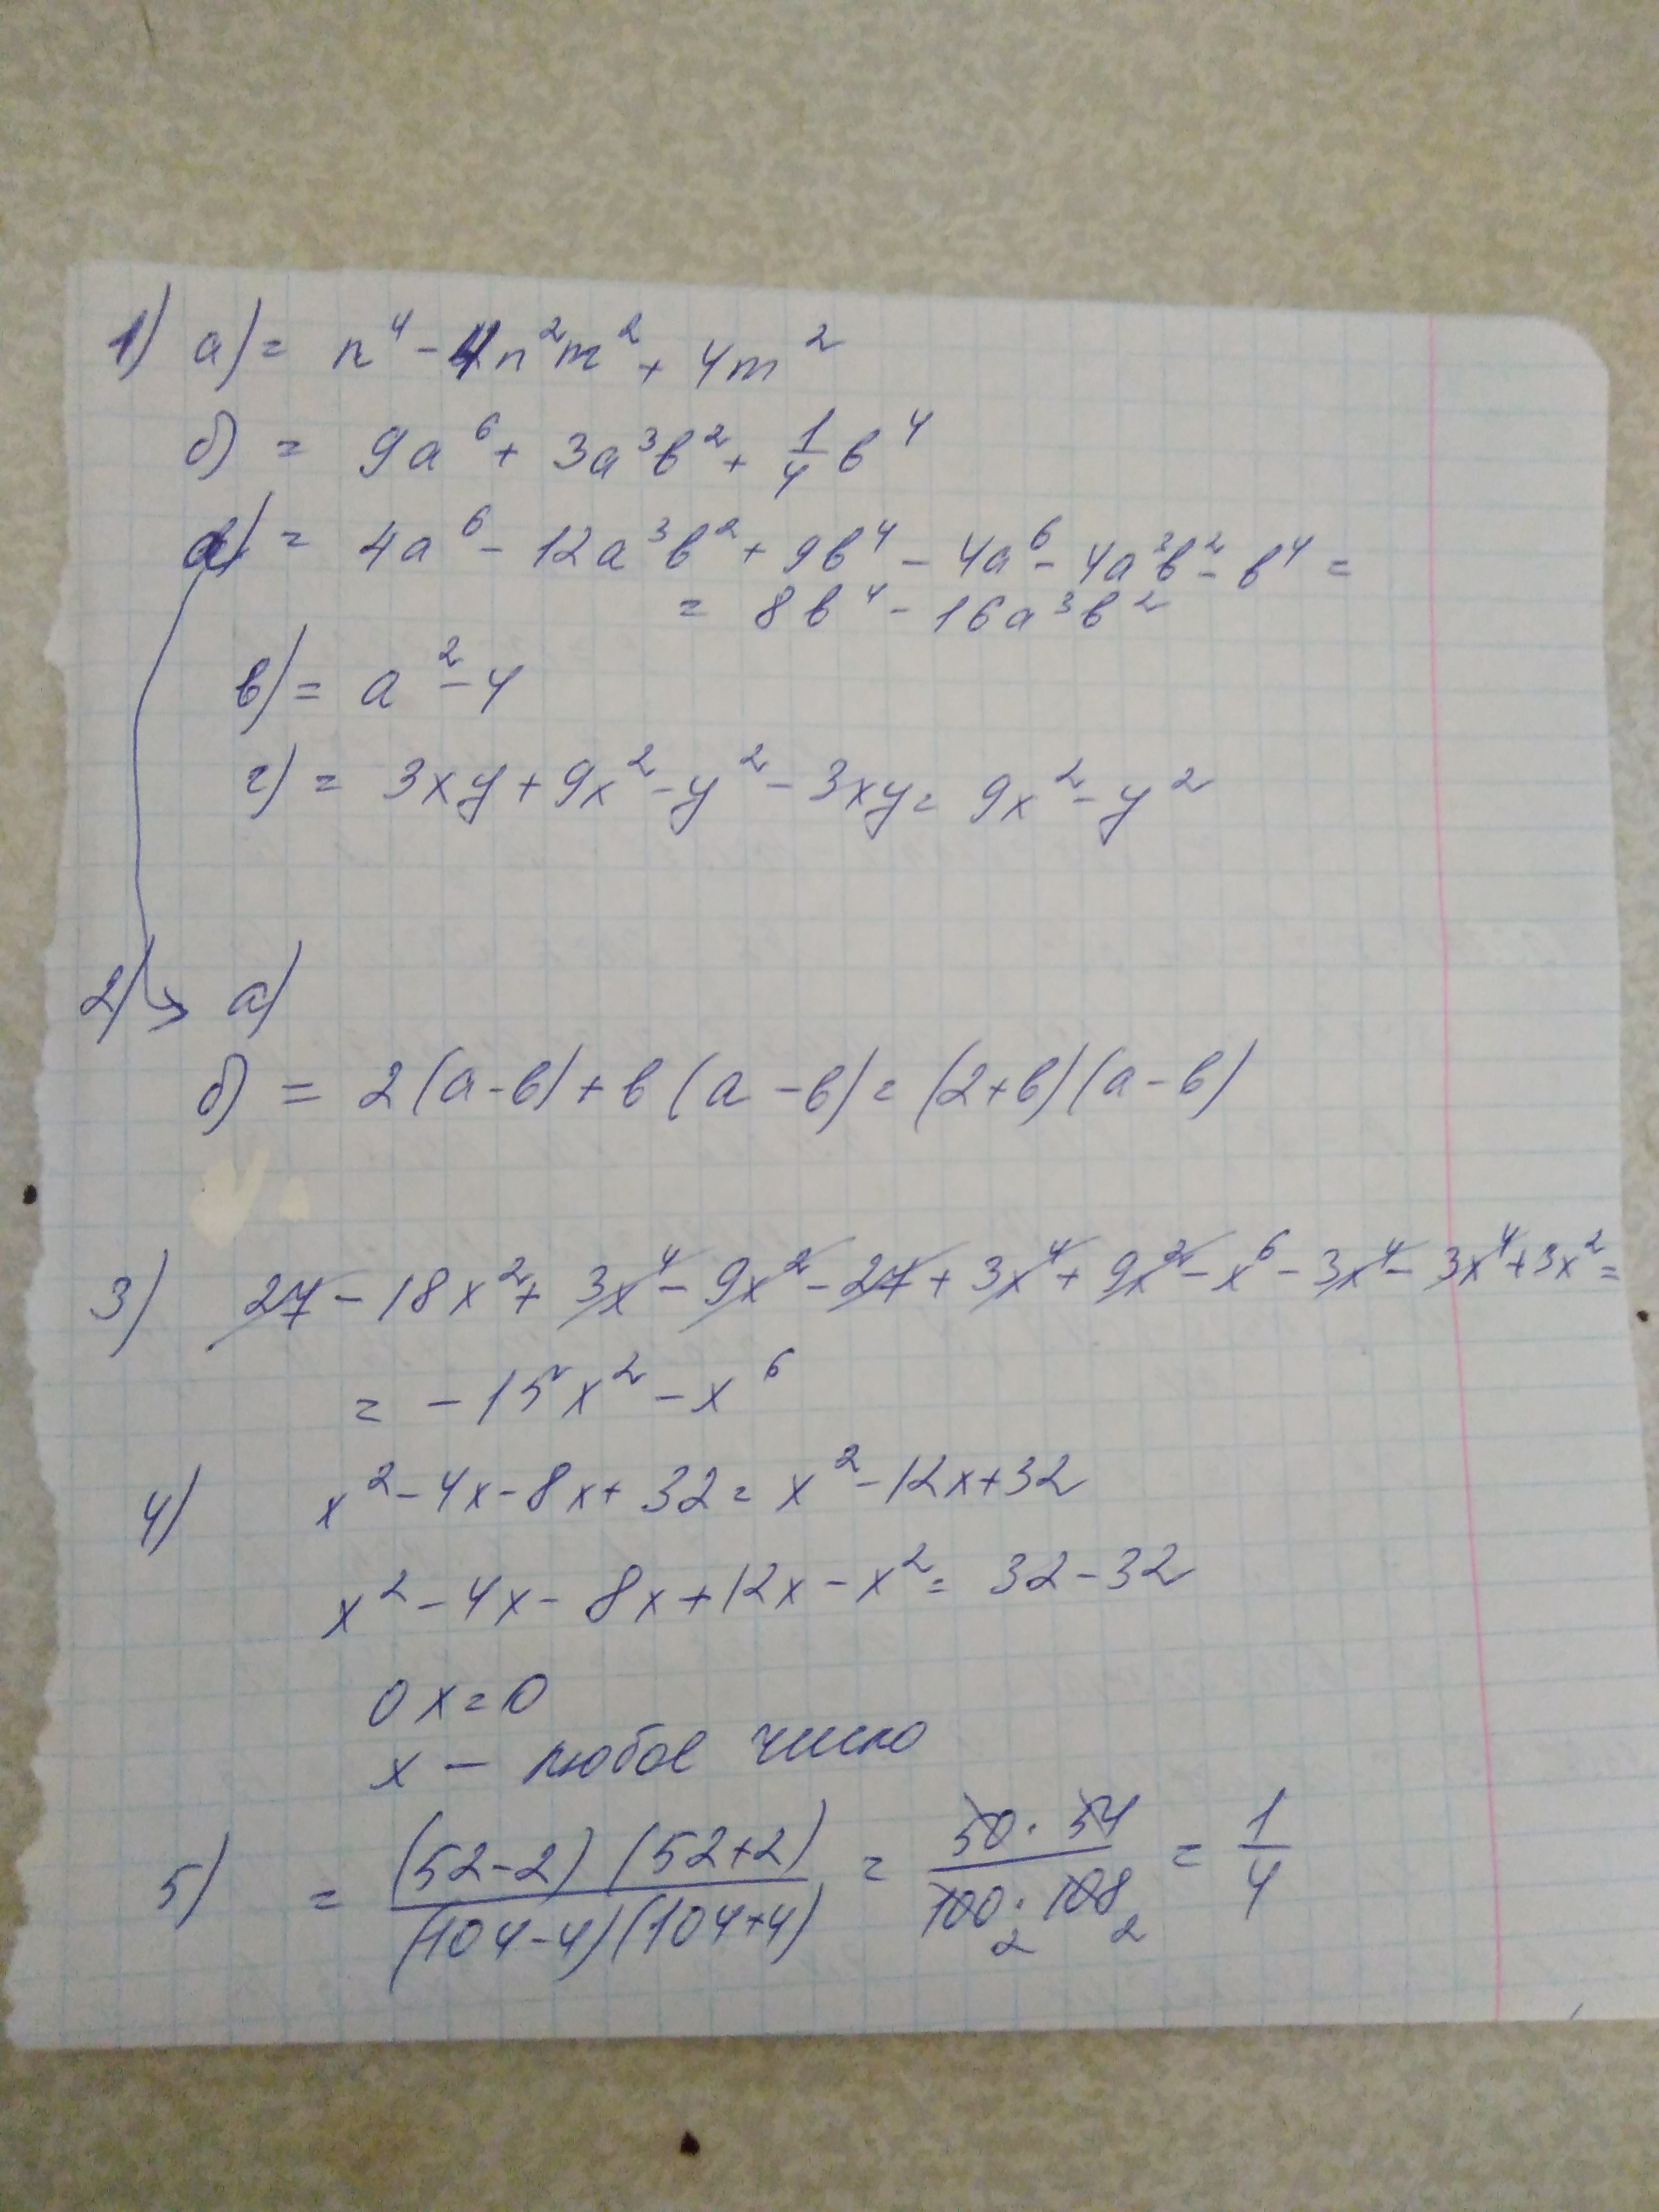 1) а) = n⁴ - 4n²m² + 4m²
б) = 9a⁶ + 3a³b² + 1/4 b⁴
а) = 4a⁶ - 12a³b² + 9b⁴ - 4a⁶ - 4a³b² - b⁴ =
= 8b⁴ - 16a³b²
в) = a² - 4
г) = 3xy + 9x² - y² - 3xy = 9x² - y²
2) → а)
б) = 2(a-b) + b(a-b) = (2+b)(a-b)
3) 27 - 18x² + 3x⁴ - 9x² - 27 + 3x⁴ + 9x² - x⁶ - 3x⁴ - 3x⁴ + 3x² =
= -15x² - x⁶
4) x² - 4x - 8x + 32 = x² - 12x + 32
x² - 4x - 8x + 12x - x² = 32 - 32
0x = 0
x — любое число
5) = (52-2)(52+2)/(104-4)(104+4) = 50·54/100·108 = 1/4
2 2